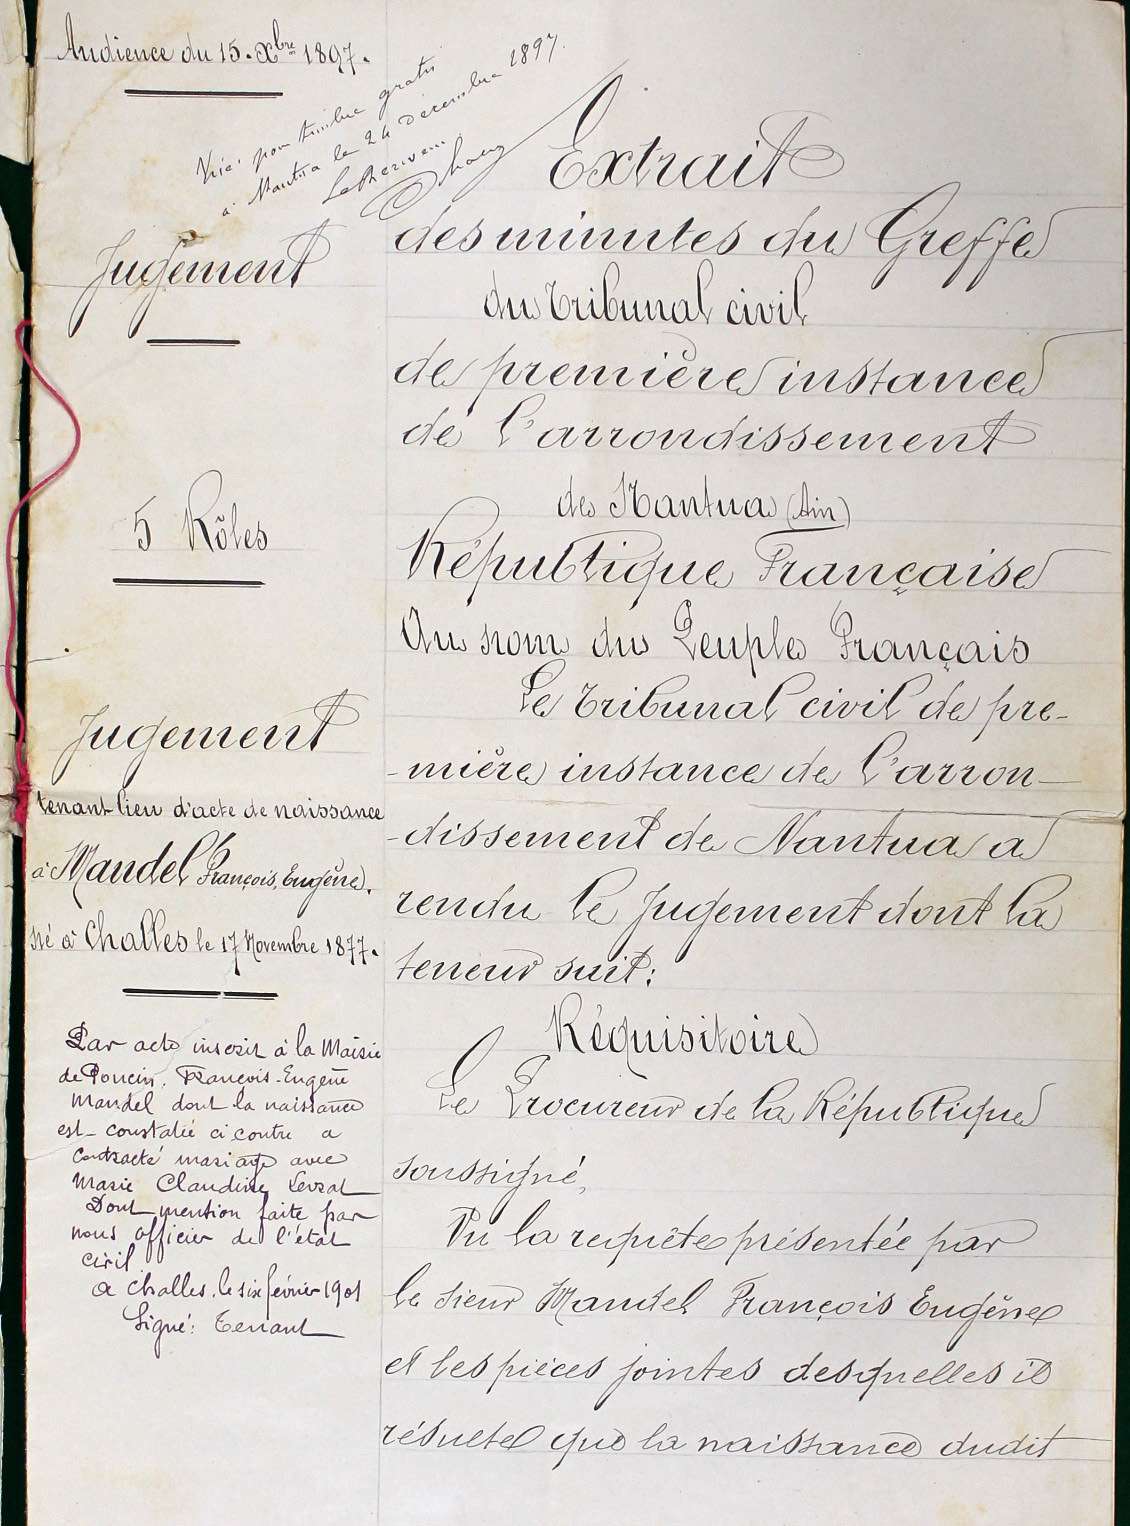 Audience du 15. Xbre 1897.
Visé pour timbre gratis
à Nantua le 24 Décembre 1897.
Jugement
5 Rôles
Jugement
tenant lieu d'acte de naissance
à Mandel François, Eugène,
né à Challes le 17 Novembre 1877.
Par acte inscrit à la Mairie
de Poncin, François-Eugène
Mandel dont la naissance
est constatée ci contre a
contracté mariage avec
Marie Claudine Levrat
Dont mention faite par
nous officier de l'état
civil
a Challes, le six février 1901
Signé: Tenant
Extrait
des minutes du Greffe
du tribunal civil
de première instance
de l'arrondissement
de Nantua (Ain)
République Française
Au nom du Peuple Français
Le tribunal civil de pre-
-mière instance de l'arron-
-dissement de Nantua a
rendu le Jugement dont la
teneur suit:
Réquisitoire
Le Procureur de la République
soussigné,
Vu la requête présentée par
le sieur Mandel François Eugène
et les pièces jointes desquelles il
résulte que la naissance dudit